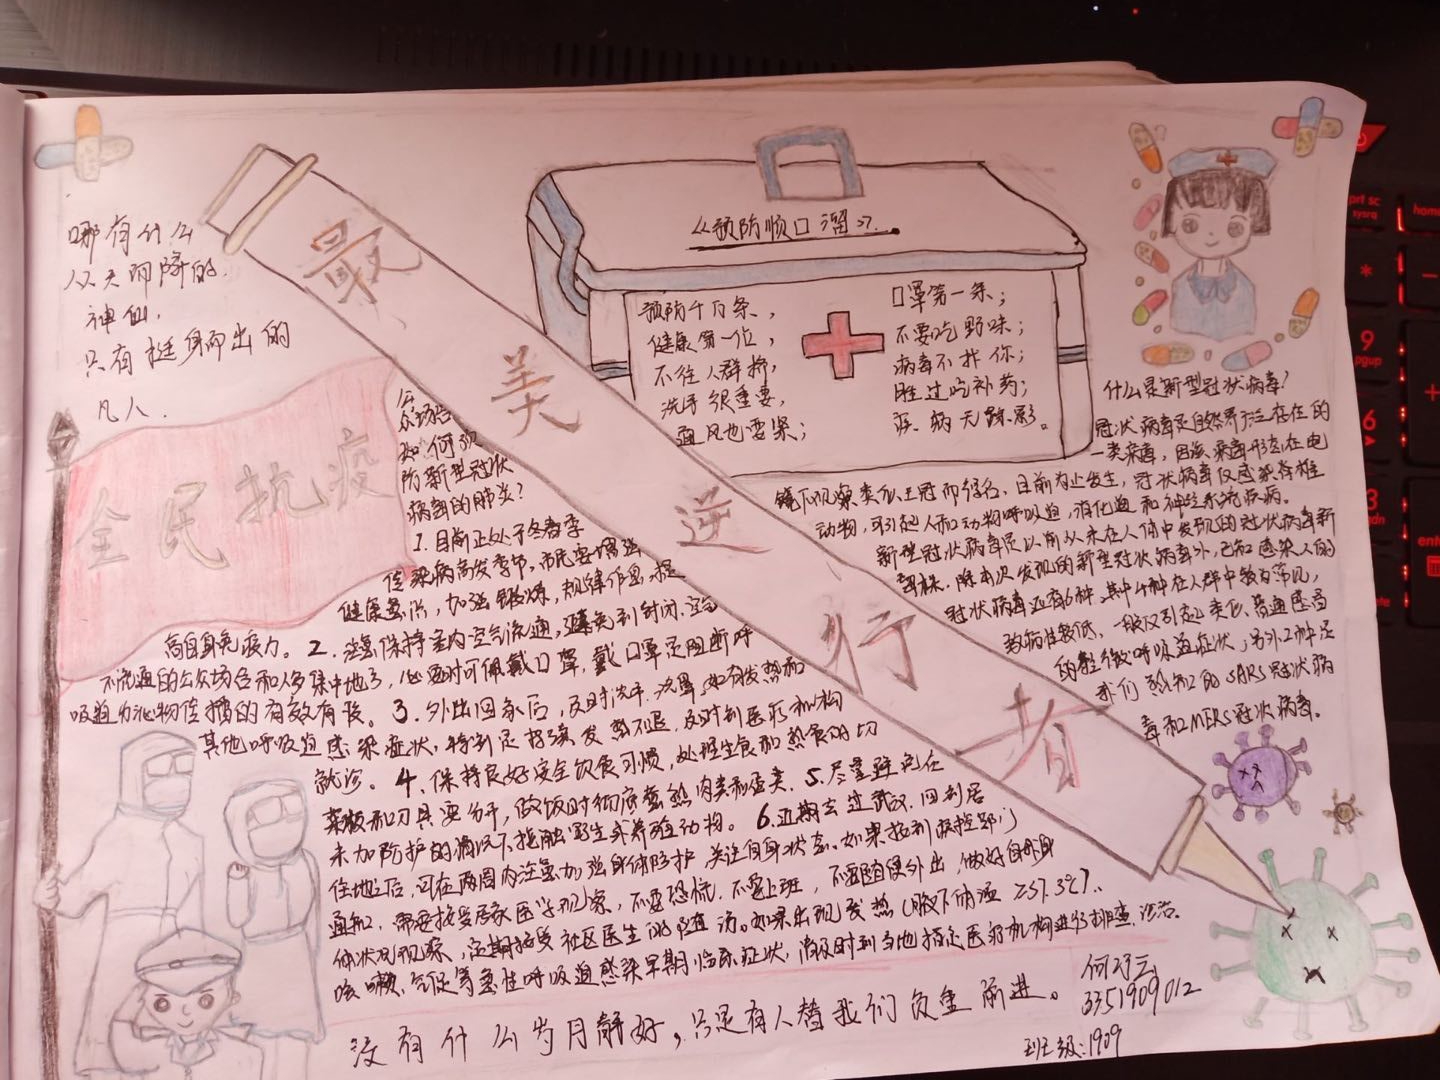 哪有什么
从天而降的
神仙,
只有挺身而出的
凡人.
最美逆行者
全民抗疫
《预防顺口溜》.
预防千万条,
健康第一位,
不往人群挤,
洗手很重要,
通风也要紧;
口罩第一条;
不要吃野味;
病毒不找你;
胜过吃补药;
疾病无踪影。
什么是新型冠状病毒?
冠状病毒是自然界广泛存在的
一类病毒,因该病毒形态在电
镜下观察类似王冠而得名.目前为止发生,冠状病毒仅感染脊椎
动物,可引起人和动物呼吸道,消化道和神经系统疾病。
新型冠状病毒是以前从未在人体中发现的冠状病毒新
毒株.除本次发现的新型冠状病毒外,已知感染人的
冠状病毒还有6种.其中4种在人群中较为常见,
致病性较低、一般仅引起类似普通感冒
的轻微呼吸道症状;另外2种是
我们熟知的SARS冠状病
毒和MERS冠状病毒。
公
众场合
如何预
防新型冠状
病毒的肺炎?
1.目前正处于冬春季
传染病高发季节,市民要增强
健康意识,加强锻炼,规律作息.提
高自身免疫力。2.注意保持室内空气流通,避免到封闭、空气
不流通的公众场合和人多集中地方,必要时可佩戴口罩,戴口罩是阻断呼
吸道分泌物传播的有效有段。3.外出回家后,及时洗手.洗鼻,如有发热和
其他呼吸道感染症状,特别是持续发热不退,及时到医疗机构
就诊。4.保持良好安全饮食习惯,处理生食和熟食的切
菜板和刀具要分开,做饭时彻底煮熟肉类和蛋类.5.尽量避免在
未加防护的情况下接触野生或养殖动物。6.近期去过武汉,回到居
住地后,可在两周内注意加强身体防护,关注自身状态.如果接到疾控部门
通知,需要接受居家医学观察,不要恐慌.不要上班,不要随便外出,做好自身身
体状况观察,定期接受社区医生的随访。如果出现发热(腋下体温≥37.3℃)、
咳嗽、气促等急性呼吸道感染早期临床症状,请及时到当地指定医疗机构进行排查、诊治。
没有什么岁月静好,只是有人替我们负重前进。
3351909012
班级:1909
prt sc
sysrq
home
*
9
pgup
6
3
+